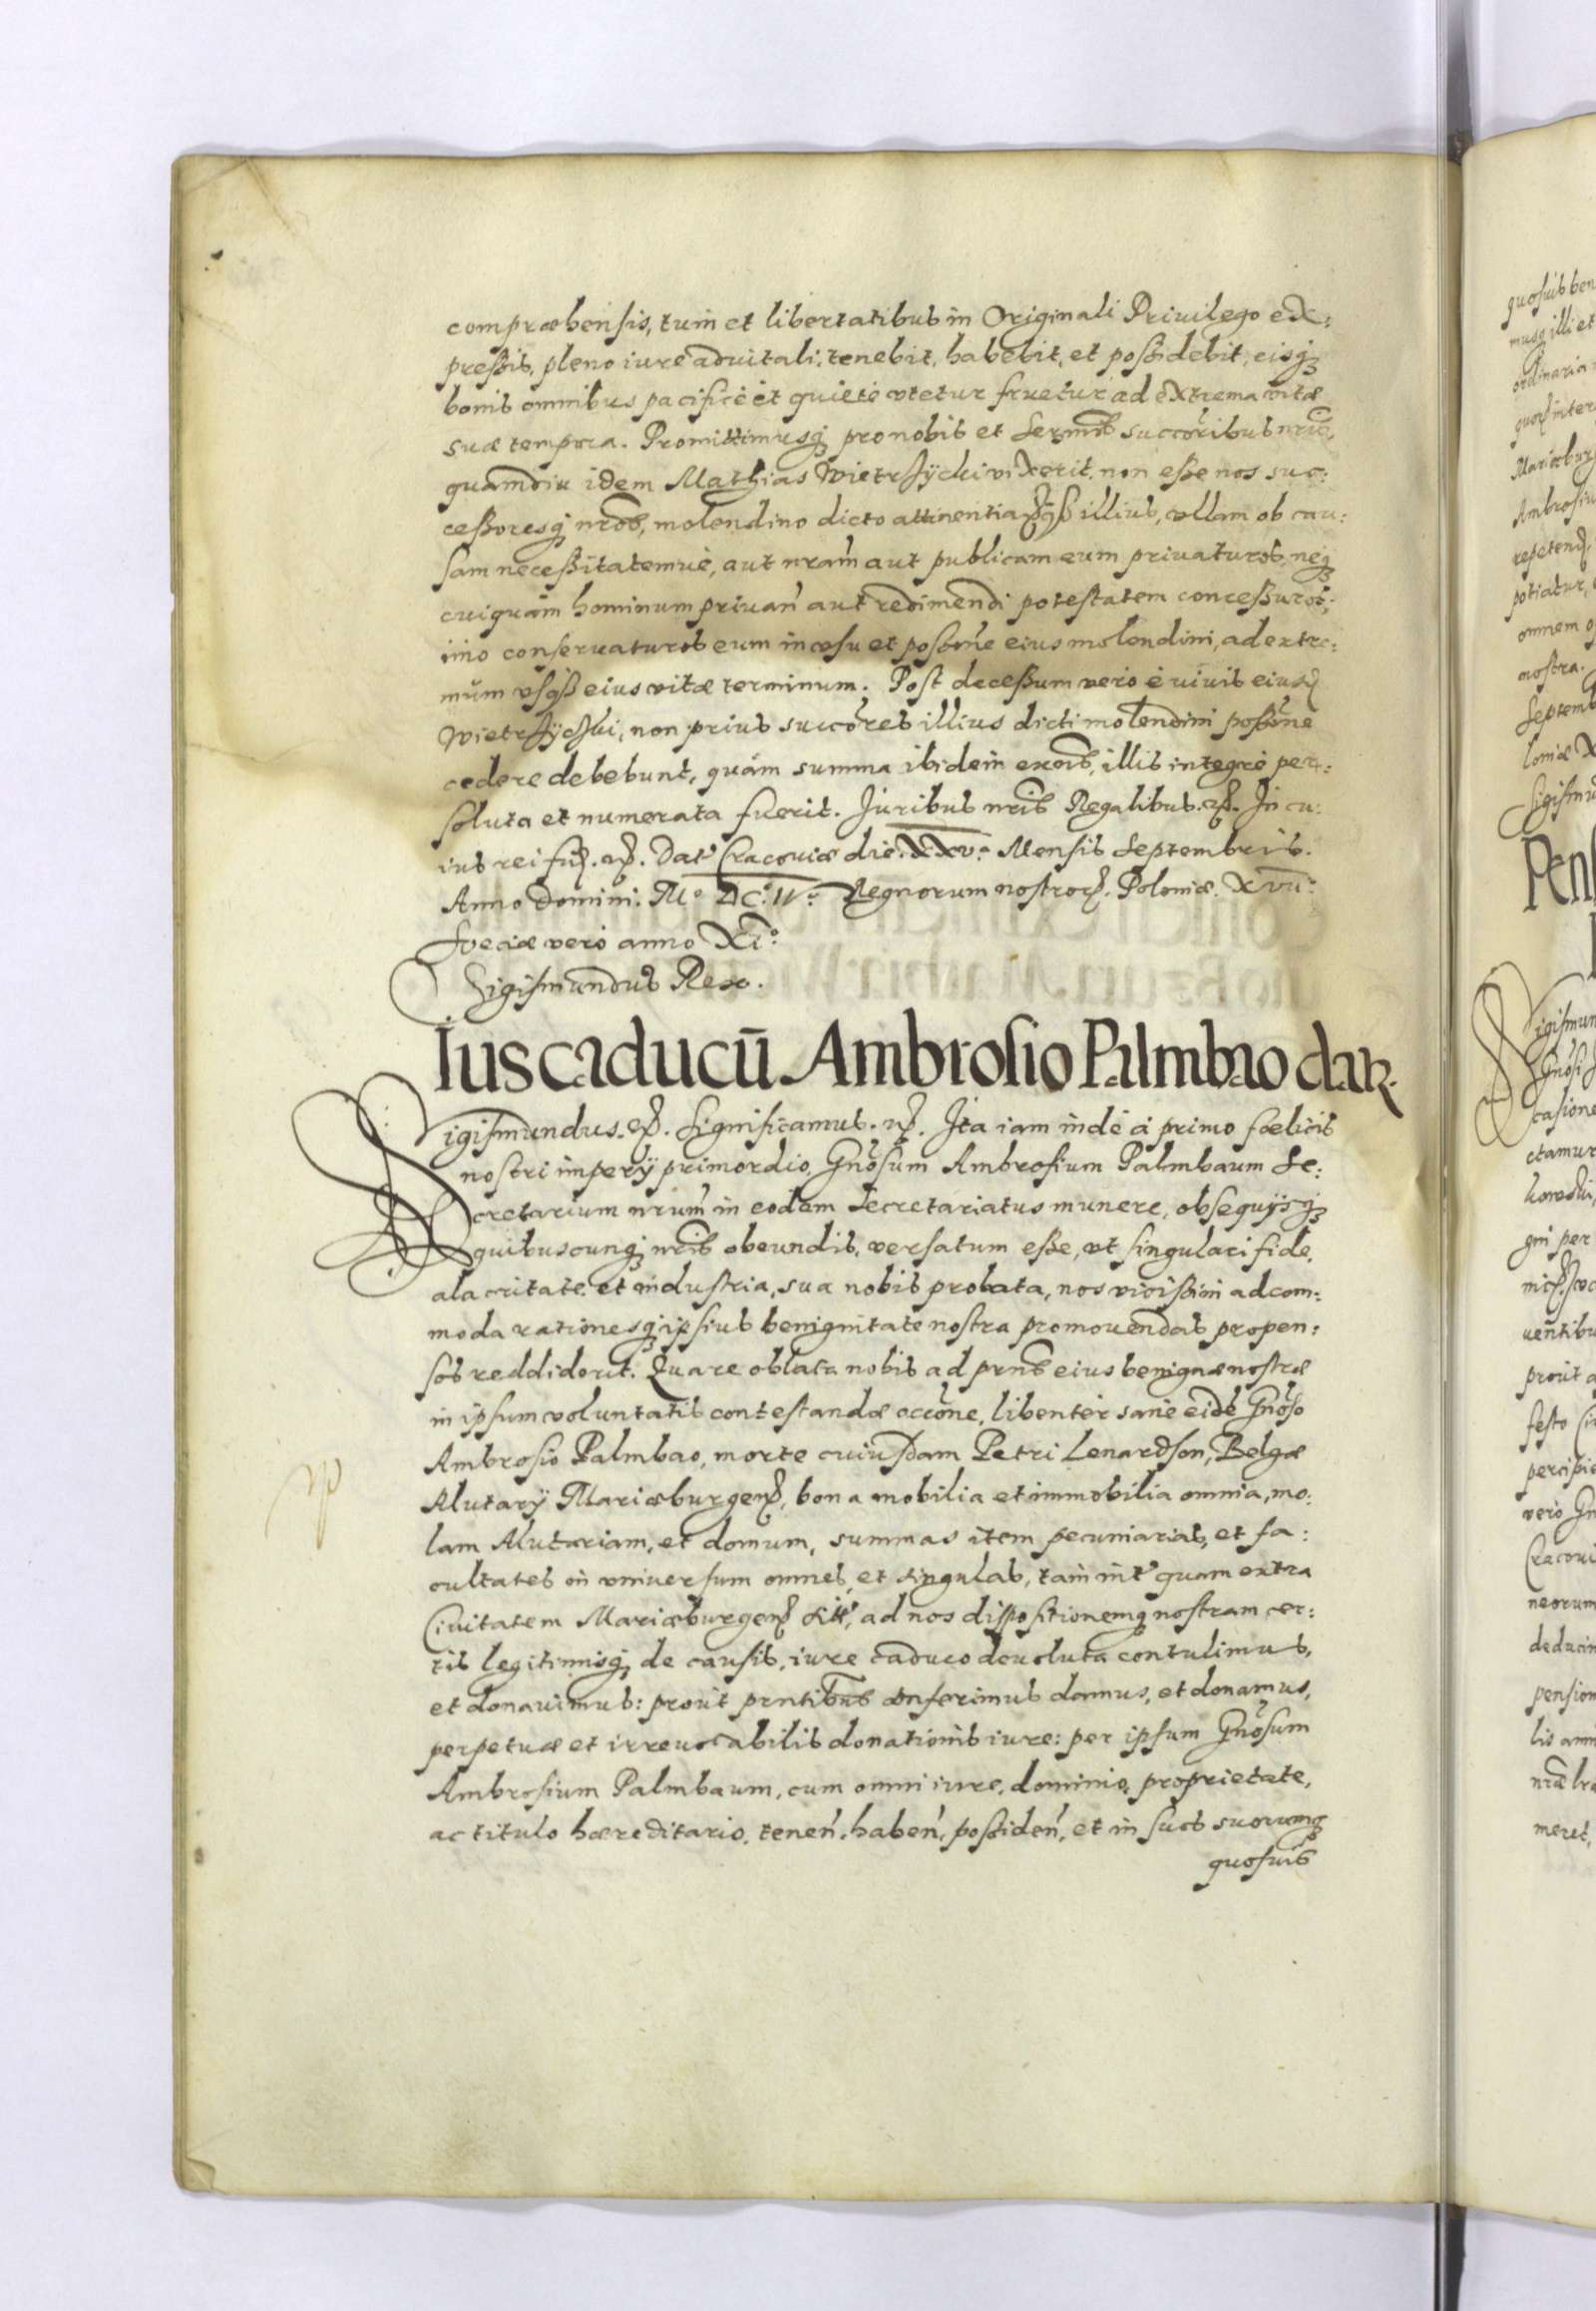 compræhensis, tum et libertatibus in Originali Priuilego ex:
pressis, pleno iure aduitali, tenebit, habebit, et possidebit, eisq3
bonis omnibus pacificè et quietè vtetur fruetur ad extrema vitæ
suæ tempora. Promittimusq3 pro nobis et Sermis succoribus nris,
quamdiu idem Mathias Wietrzÿcki vixerit, non esse nos suc:
cessoresq3 nros, molendino dicto attinentiaq3 illius, vllam ob cau:
sam necessitatemuè, aut nram aut publicam eum priuaturos, neq3
cuiquam hominum priuan aut redimendi potestatem concessuros;
imo conseruaturos eum in vsu et possne eius molendini, ad extre:
mum vsq3 eius vitæ terminum. Post decessum vero è viuis eiusd
Wietrzÿcki, non prius succores illius dicti molendini possne
cedere debebunt, quàm summa ibidem illis integrè per:
soluta et numerata fuerit. Juribus nris Regalibus. etc. In cu:
ius rei fid. etc. Dat Cracouiæ die. XXv.a Mensis Septembris.
Anno Domini. Mo DC.o IV.o Regnorum nostror. Poloniæ. Xvii.o
Sveciæ verò anno XI.o
Sigismundus Rex.
Ius caducū Ambrosio Palmbao datr.
Sigismundus. etc. Significamus. etc. Ita iam indè à primo fœlicis
nostri imperÿ primordio, Gnosum Ambrosium Palmbaum Se:
cretarium nrum in eodem Secretariatus munere, obsequijsq3
quibuscunq3 nris obeundis, versatum esse, vt singulari fide,
alacritate et industria, sua nobis probata, nos vicissim ad com:
moda rationesq3 ipsius benignitate nostra promouendas propen:
sos reddiderit. Quare oblata nobis ad prns eius benignæ nostræ
in ipsum voluntatis contestandæ occone, libenter sanè eide Gnoso
Ambrosio Palmbao, morte cuiusdam Petri Lenardson, Belgæ
Alutarÿ Mariæburgen, bona mobilia et immobilia omnia, mo:
lam Alutariam, et domum, summas item pecuniarias, et fa:
cultates in vniuersum omnes, et singulas, tam int quam extra
Ciuitatem Mariæburgen sitt, ad nos dispositionemq3 nostram cer:
tis legitimisq3 de causis, iure caduco deuoluta contulimus,
et donauimus: prout prntibus conferimus damus, et donamus,
perpetuæ et irreuocabilis donationis iure: per ipsum Gnosum
Ambrosium Palmbaum, cum omni iure, dominio, proprietate,
ac titulo hæreditario, tenen, haben, possiden, et in suos suorumq3
quosuis